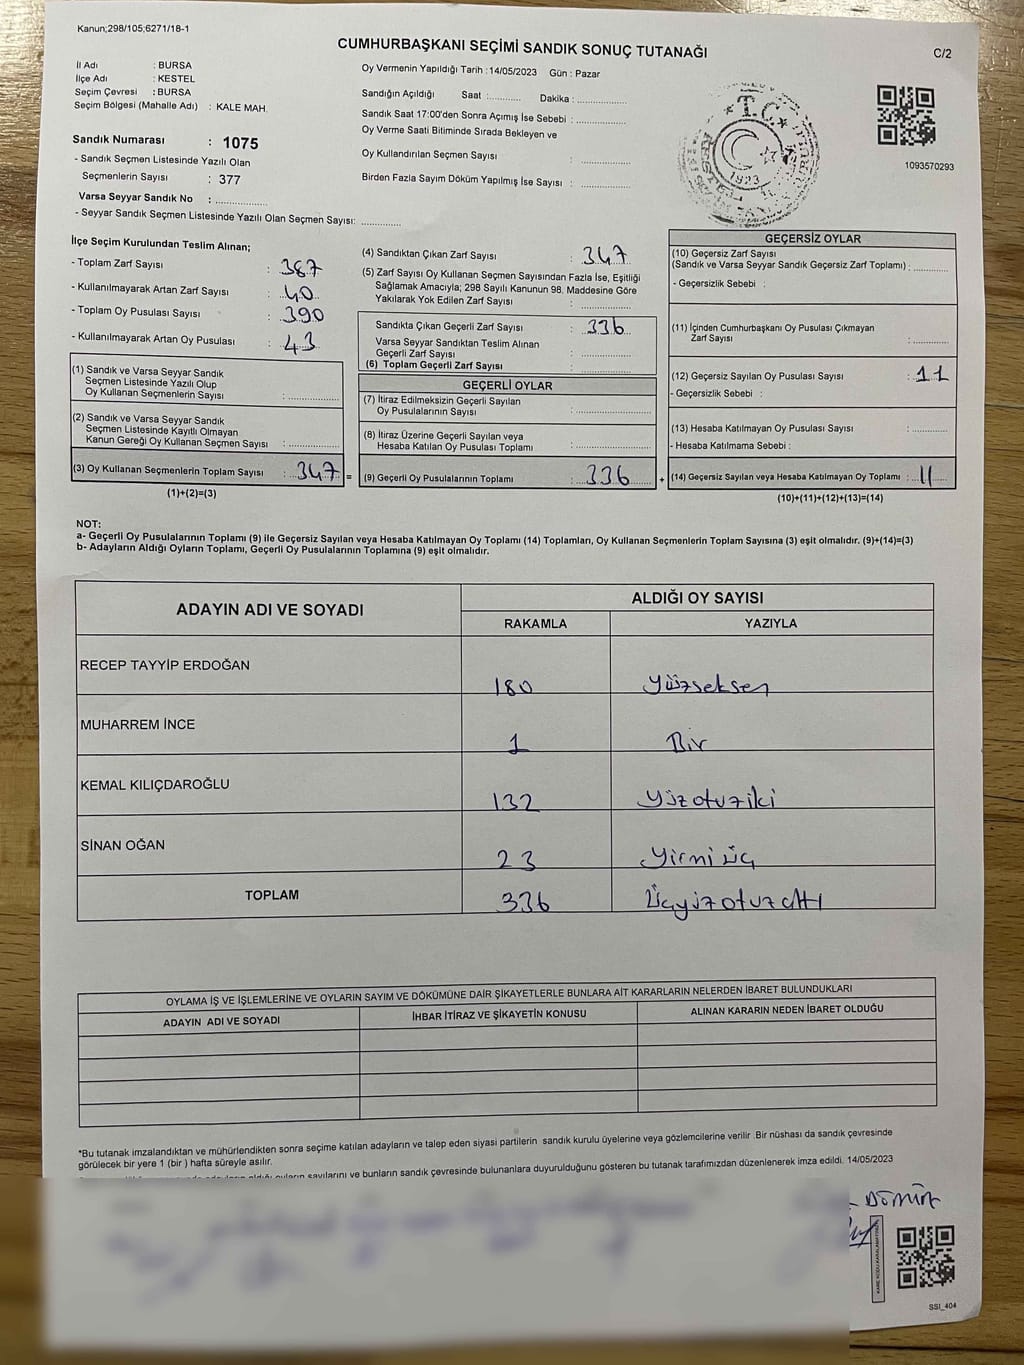 Kanun;298/105;6271/18-1
CUMHURBAŞKANI SEÇİMİ SANDIK SONUÇ TUTANAĞI
C/2
İl Adı : BURSA
İlçe Adı : KESTEL
Seçim Çevresi : BURSA
Seçim Bölgesi (Mahalle Adı) : KALE MAH.
Sandık Numarası : 1075
- Sandık Seçmen Listesinde Yazılı Olan
Seçmenlerin Sayısı : 377
Varsa Seyyar Sandık No : ..............
- Seyyar Sandık Seçmen Listesinde Yazılı Olan Seçmen Sayısı: ............
Oy Vermenin Yapıldığı Tarih : 14/05/2023 Gün : Pazar
Sandığın Açıldığı Saat :........... Dakika : ................
Sandık Saat 17:00'den Sonra Açımış İse Sebebi : ................
Oy Verme Saati Bitiminde Sırada Bekleyen ve
Oy Kullandırılan Seçmen Sayısı : ................
Birden Fazla Sayım Döküm Yapılmış İse Sayısı : ................
T.C.
1923
1093570293
İlçe Seçim Kurulundan Teslim Alınan;
- Toplam Zarf Sayısı : 387
- Kullanılmayarak Artan Zarf Sayısı : 40
- Toplam Oy Pusulası Sayısı : 390
- Kullanılmayarak Artan Oy Pusulası : 43
(1) Sandık ve Varsa Seyyar Sandık
Seçmen Listesinde Yazılı Olup
Oy Kullanan Seçmenlerin Sayısı : ................
(2) Sandık ve Varsa Seyyar Sandık
Seçmen Listesinde Kayıtlı Olmayan
Kanun Gereği Oy Kullanan Seçmen Sayısı : ................
(3) Oy Kullanan Seçmenlerin Toplam Sayısı : 347 =
(1)+(2)=(3)
(4) Sandıktan Çıkan Zarf Sayısı : 347
(5) Zarf Sayısı Oy Kullanan Seçmen Sayısından Fazla İse, Eşitliği
Sağlamak Amacıyla; 298 Sayılı Kanunun 98. Maddesine Göre
Yakılarak Yok Edilen Zarf Sayısı : ................
Sandıkta Çıkan Geçerli Zarf Sayısı : 336
Varsa Seyyar Sandıktan Teslim Alınan
Geçerli Zarf Sayısı : ................
(6) Toplam Geçerli Zarf Sayısı : ................
GEÇERLİ OYLAR
(7) İtiraz Edilmeksizin Geçerli Sayılan
Oy Pusulalarının Sayısı : ................
(8) İtiraz Üzerine Geçerli Sayılan veya
Hesaba Katılan Oy Pusulası Toplamı : ................
(9) Geçerli Oy Pusulalarının Toplamı : 336 +
GEÇERSİZ OYLAR
(10) Geçersiz Zarf Sayısı
(Sandık ve Varsa Seyyar Sandık Geçersiz Zarf Toplamı) : ............
- Geçersizlik Sebebi :
(11) İçinden Cumhurbaşkanı Oy Pusulası Çıkmayan
Zarf Sayısı : ............
(12) Geçersiz Sayılan Oy Pusulası Sayısı : 11
- Geçersizlik Sebebi :
(13) Hesaba Katılmayan Oy Pusulası Sayısı : ............
- Hesaba Katılmama Sebebi :
(14) Geçersiz Sayılan veya Hesaba Katılmayan Oy Toplamı : 11
(10)+(11)+(12)+(13)=(14)
NOT:
a- Geçerli Oy Pusulalarının Toplamı (9) ile Geçersiz Sayılan veya Hesaba Katılmayan Oy Toplamı (14) Toplamları, Oy Kullanan Seçmenlerin Toplam Sayısına (3) eşit olmalıdır. (9)+(14)=(3)
b- Adayların Aldığı Oyların Toplamı, Geçerli Oy Pusulalarının Toplamına (9) eşit olmalıdır.
ADAYIN ADI VE SOYADI
ALDIĞI OY SAYISI
RAKAMLA YAZIYLA
RECEP TAYYİP ERDOĞAN 180 Yüzseksen
MUHARREM İNCE 1 Bir
KEMAL KILIÇDAROĞLU 132 Yüzotuziki
SİNAN OĞAN 23 Yirmiüç
TOPLAM 336 Üçyüzotuzaltı
OYLAMA İŞ VE İŞLEMLERİNE VE OYLARIN SAYIM VE DÖKÜMÜNE DAİR ŞİKAYETLERLE BUNLARA AİT KARARLARIN NELERDEN İBARET BULUNDUKLARI
ADAYIN ADI VE SOYADI İHBAR İTİRAZ VE ŞİKAYETİN KONUSU ALINAN KARARIN NEDEN İBARET OLDUĞU
*Bu tutanak imzalandıktan ve mühürlendikten sonra seçime katılan adayların ve talep eden siyasi partilerin sandık kurulu üyelerine veya gözlemcilerine verilir .Bir nüshası da sandık çevresinde
görülecek bir yere 1 (bir ) hafta süreyle asılır.
oyların sayılarını ve bunların sandık çevresinde bulunanlara duyurulduğunu gösteren bu tutanak tarafımızdan düzenlenerek imza edildi. 14/05/2023
SSI_404